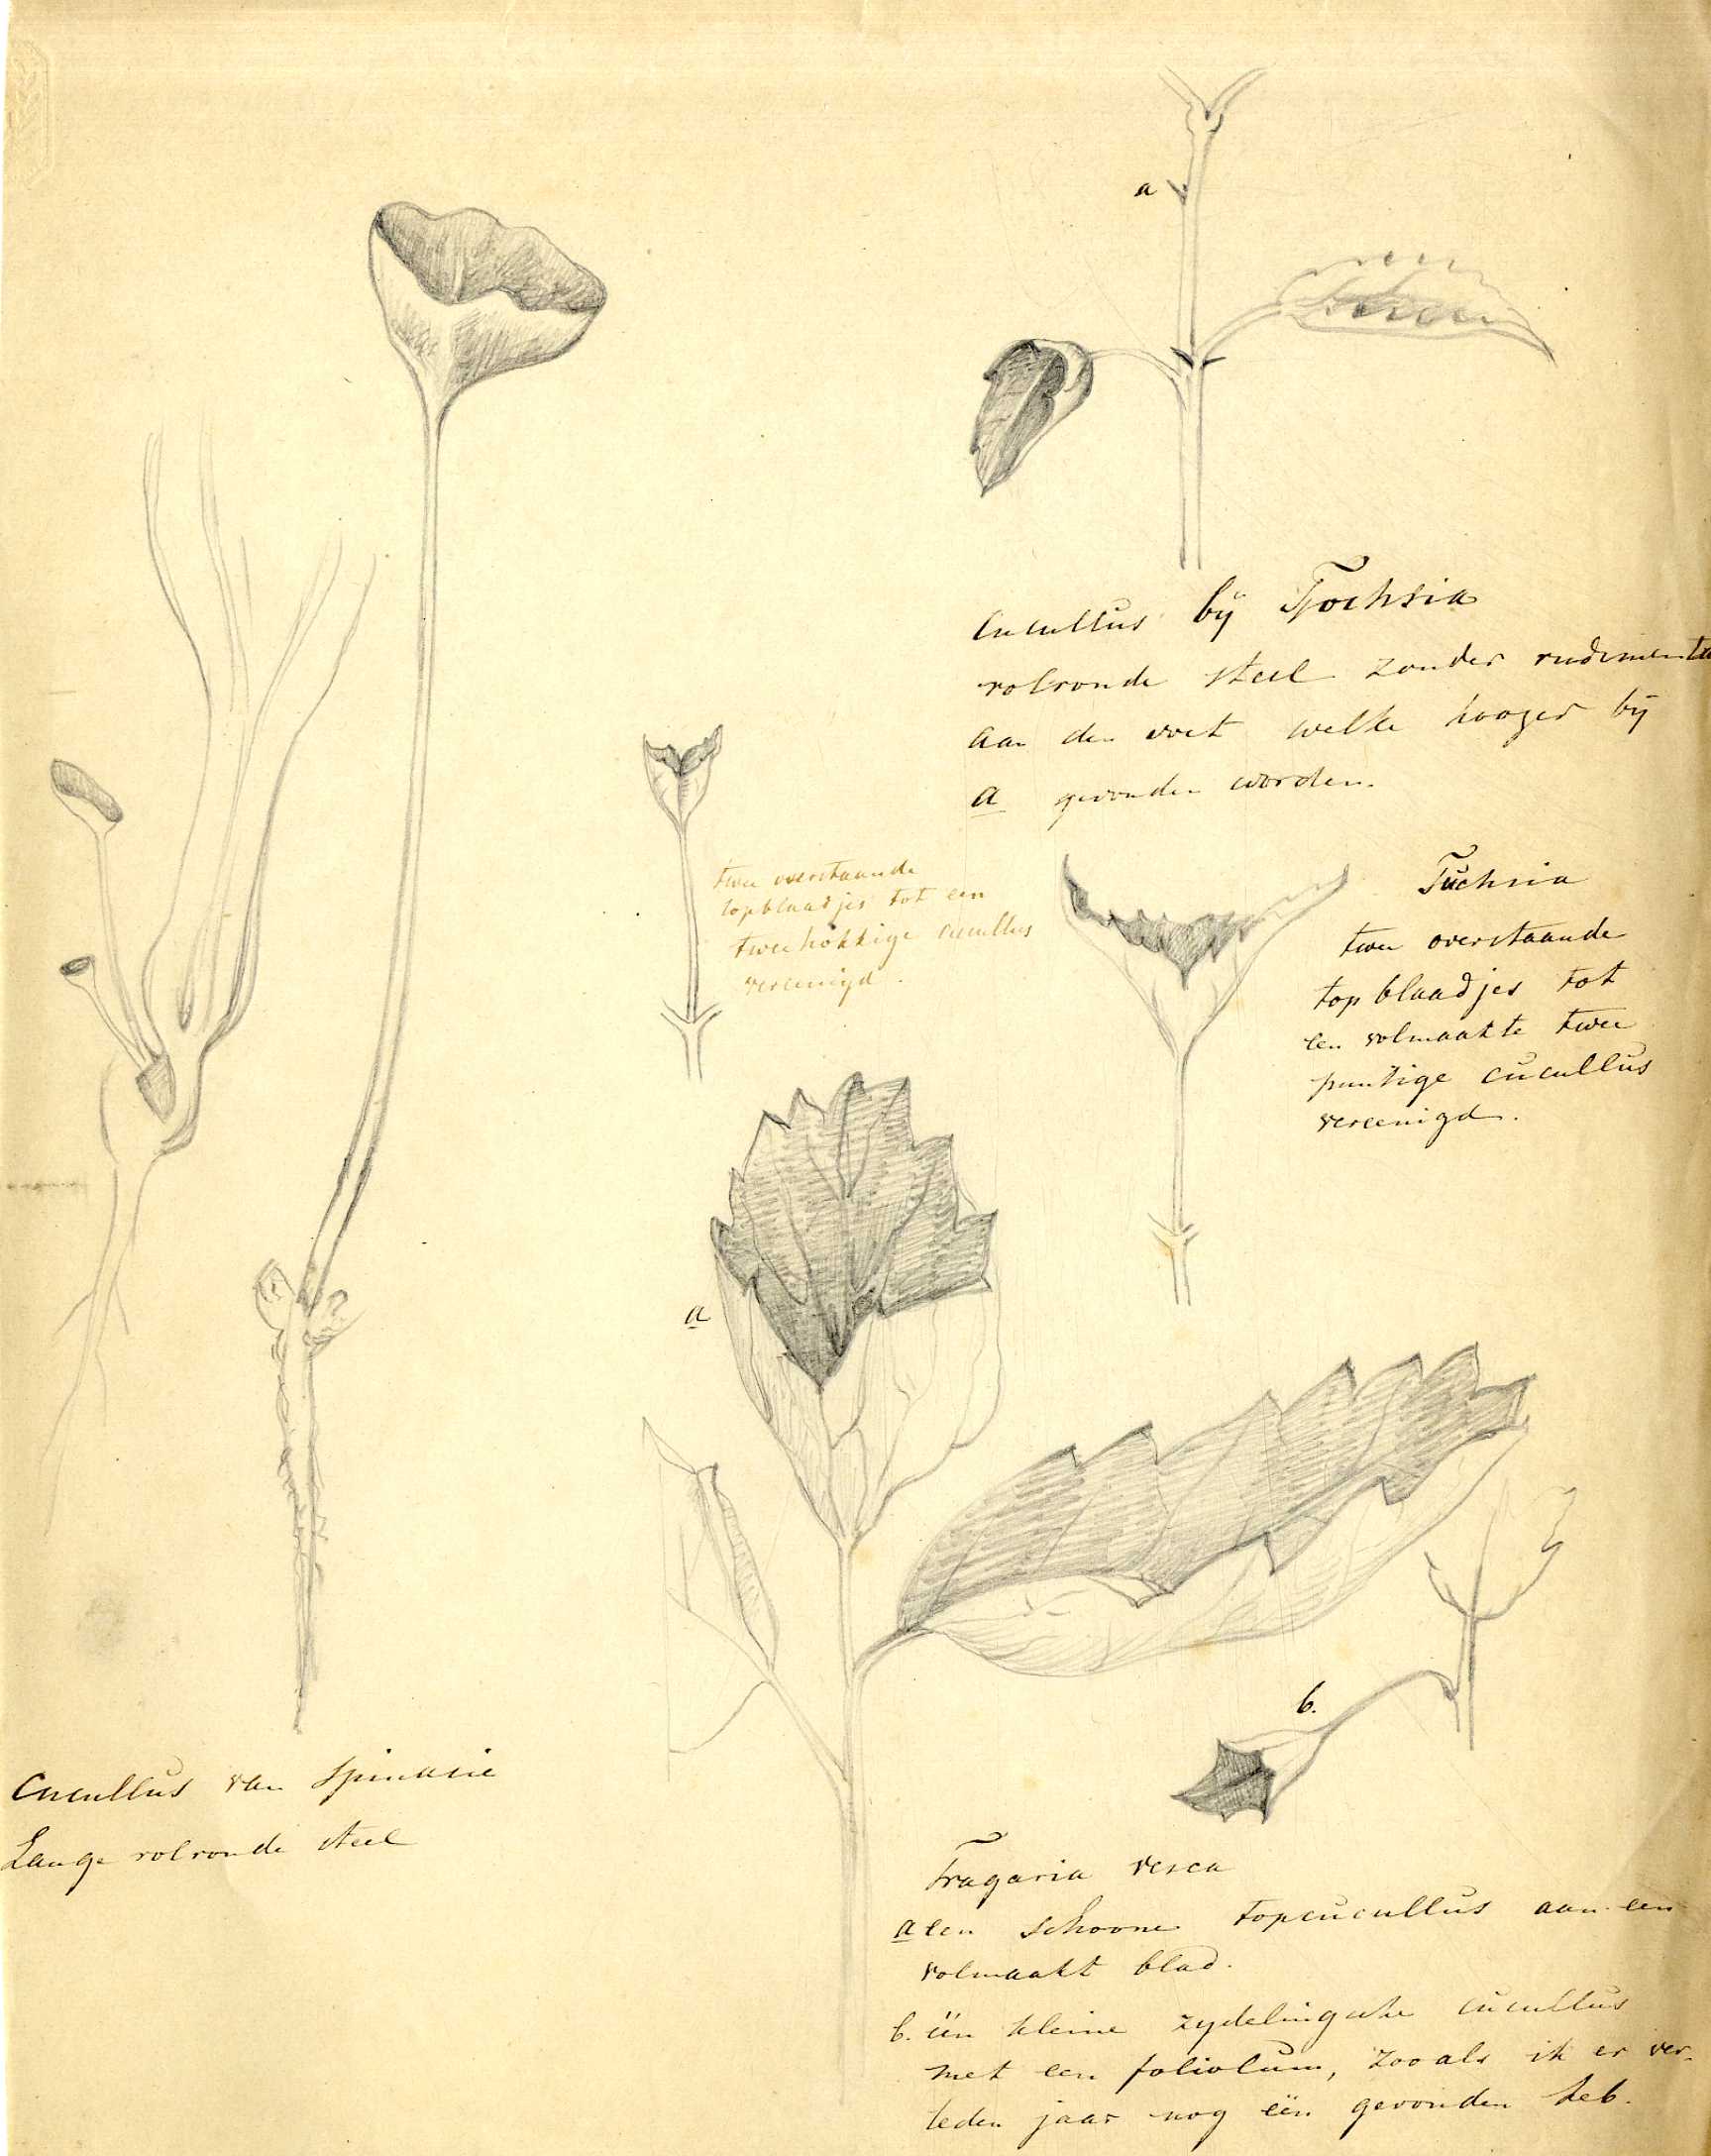 a
Cucullus bij Fochsia
rolronde steel zonder rudimenta
aan den voet welke hooger bij
a gevonden worden.
twee overstaande
topblaadjes tot een
tweehokkige cucullus
vereenigd.
Fuchsia
twee overstaande
topblaadjes tot
een volmaakte twee
puntige cucullus
vereenigd.
a
b.
Cucullus van Spinasie
Lange rolronde steel
Fragaria vesca
a een schoone topcucullus aan een
volmaakt blad.
b. één kleine zydelingsche cucullus
met een foliolum, zooals ik er ver-
leden jaar nog één gevonden heb.